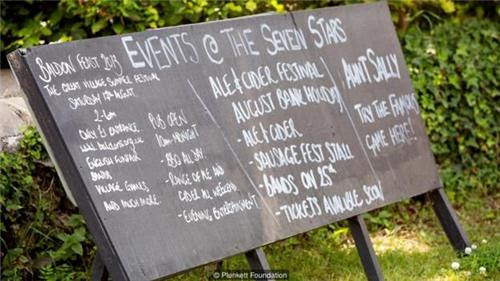 EVENTS @ THE SEVEN STARS
BALDON FEAST 2013
THE GREAT VILLAGE SUMMER FESTIVAL
SATURDAY 17TH AUGUST
2-6pm
ONLY £1 ENTRANCE
ENGLISH SUMMER
BANDS
VILLAGE GAMES
AND MUCH MORE
PUB OPEN
10am-MIDNIGHT
- BBQ ALL DAY
- RANGE OF ALE AND
CIDER ALL WEEKEND
- EVENING ENTERTAINMENT
ALE & CIDER FESTIVAL
AUGUST BANK HOLIDAY
- ALE & CIDER
- SAUSAGE FEST STALL
- BANDS ON 25TH
- TICKETS AVAILABLE SOON
AUNT SALLY
TRY THE FAMOUS
GAME HERE!
© Plunkett Foundation